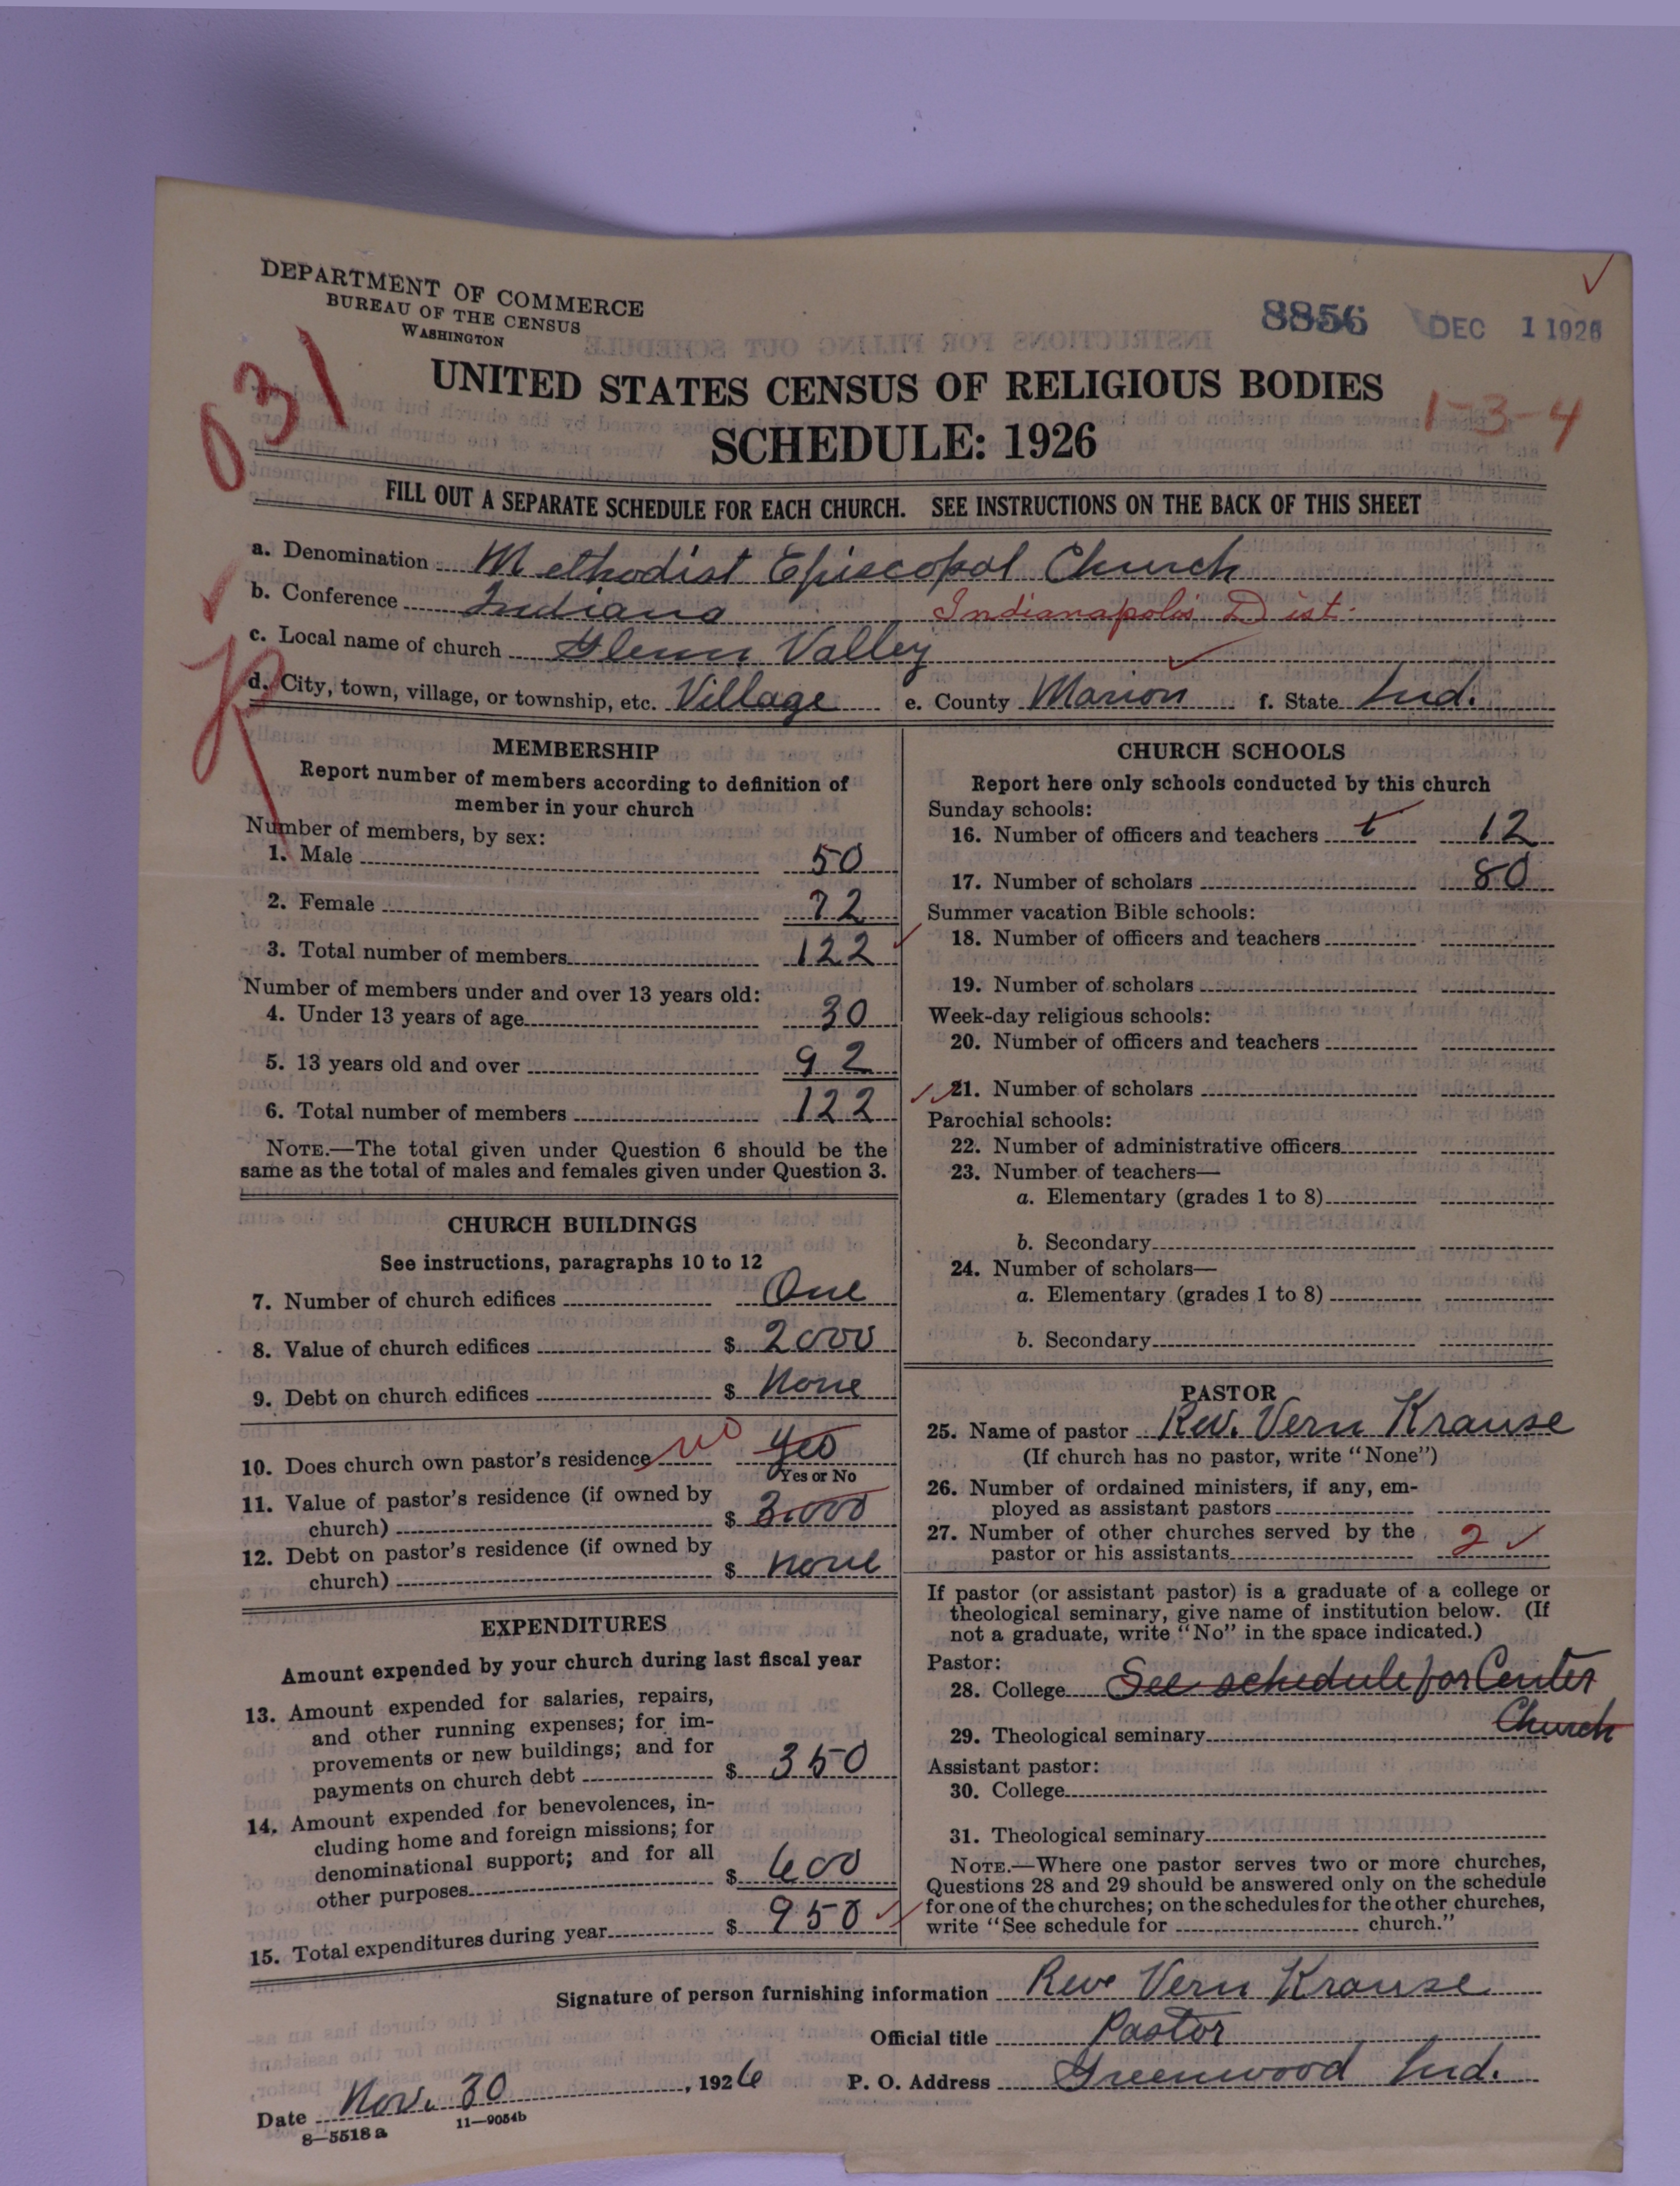 DEPARTMENT OF COMMERCE
BUREAU OF THE CENSUS
WASHINGTON
8856
DEC 1 1926
031
UNITED STATES CENSUS OF RELIGIOUS BODIES
1-3-4
SCHEDULE: 1926
FILL OUT A SEPARATE SCHEDULE FOR EACH CHURCH. SEE INSTRUCTIONS ON THE BACK OF THIS SHEET
a. Denomination Methodist Episcopal Church
b. Conference Indiana Indianapolis Dist.
c. Local name of church Glenn Valley
d. City, town, village, or township, etc. Village e. County Marion f. State Ind.
MEMBERSHIP
Report number of members according to definition of
member in your church
Number of members, by sex:
1. Male 50
2. Female 72
3. Total number of members 122
Number of members under and over 13 years old:
4. Under 13 years of age 30
5. 13 years old and over 92
6. Total number of members 122
NOTE.—The total given under Question 6 should be the
same as the total of males and females given under Question 3.
CHURCH BUILDINGS
See instructions, paragraphs 10 to 12
7. Number of church edifices One
8. Value of church edifices $ 2000
9. Debt on church edifices $ None
10. Does church own pastor's residence no Yes
Yes or No
11. Value of pastor's residence (if owned by
church) $ 3.000
12. Debt on pastor's residence (if owned by
church) $ none
EXPENDITURES
Amount expended by your church during last fiscal year
13. Amount expended for salaries, repairs,
and other running expenses; for im-
provements or new buildings; and for
payments on church debt $ 350
14. Amount expended for benevolences, in-
cluding home and foreign missions; for
denominational support; and for all
other purposes $ 600
15. Total expenditures during year $ 950
CHURCH SCHOOLS
Report here only schools conducted by this church
Sunday schools:
16. Number of officers and teachers t 12
17. Number of scholars 80
Summer vacation Bible schools:
18. Number of officers and teachers
19. Number of scholars
Week-day religious schools:
20. Number of officers and teachers
21. Number of scholars
Parochial schools:
22. Number of administrative officers
23. Number of teachers—
a. Elementary (grades 1 to 8)
b. Secondary
24. Number of scholars—
a. Elementary (grades 1 to 8)
b. Secondary
PASTOR
25. Name of pastor Rev. Vern Krause
(If church has no pastor, write "None")
26. Number of ordained ministers, if any, em-
ployed as assistant pastors
27. Number of other churches served by the
pastor or his assistants 2
If pastor (or assistant pastor) is a graduate of a college or
theological seminary, give name of institution below. (If
not a graduate, write "No" in the space indicated.)
Pastor:
28. College See schedule for Center
Church
29. Theological seminary
Assistant pastor:
30. College
31. Theological seminary
NOTE.—Where one pastor serves two or more churches,
Questions 28 and 29 should be answered only on the schedule
for one of the churches; on the schedules for the other churches,
write "See schedule for church."
Signature of person furnishing information Rev Vern Krause
Official title Pastor
Date Nov. 30, 1926 P. O. Address Greenwood Ind.
8—5518 a 11—9054b